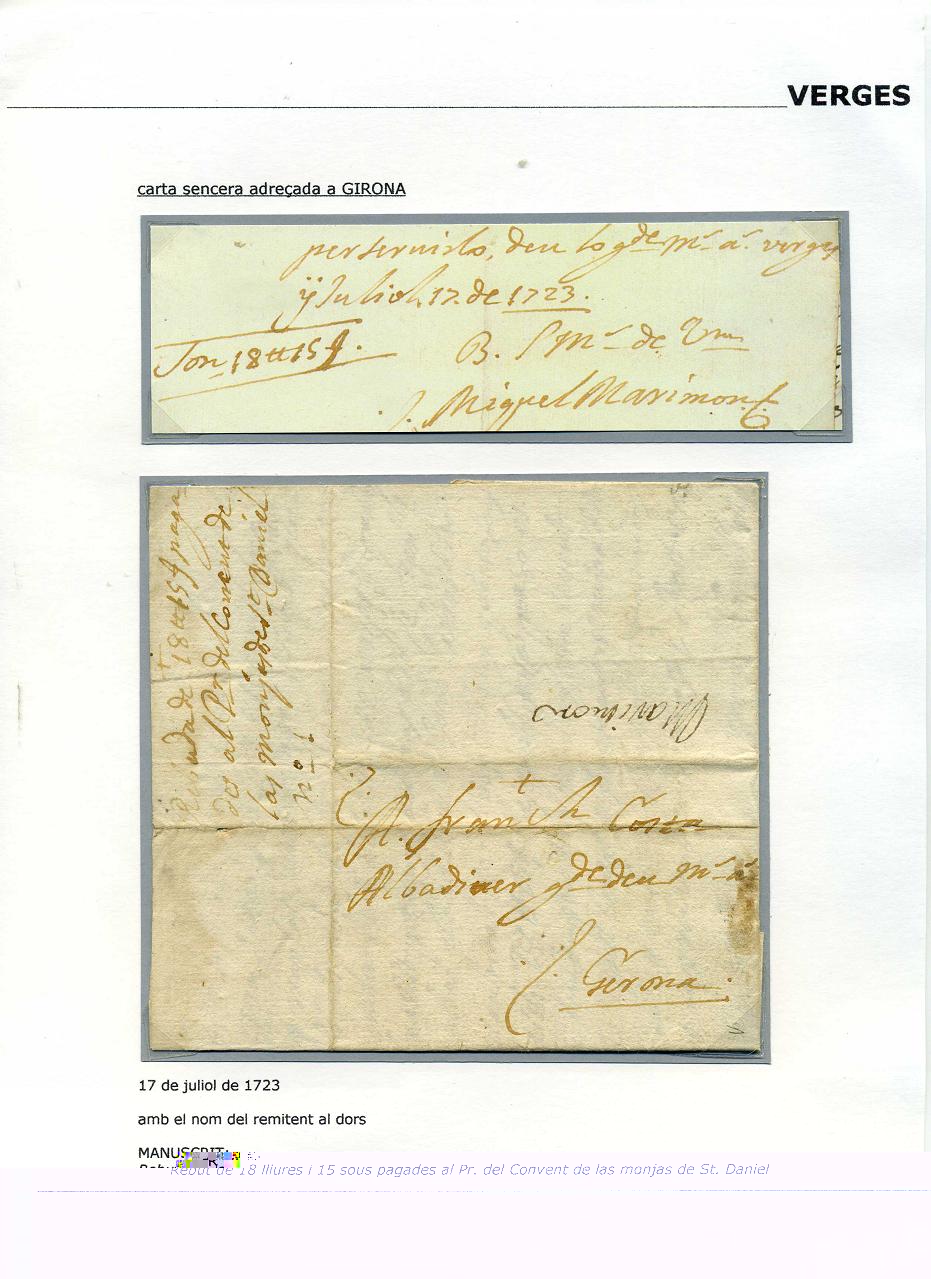 VERGES
carta sencera adreçada a GIRONA
per servirlo, deu lo gde ms as. verges
ÿ Juliol 17 de 1723.
Son 18 tt 15 ſ.
B. S Ms de Vm
Miquel Marimon
Rebuda de 18 tt 15 ſ paga
dos al Pr. del Convent de
las monjas de St Daniel
nº 1
Marimon
A. Franch Costa
gde deu ms as
Girona
17 de juliol de 1723
amb el nom del remitent al dors
MANUSCRIT:
Rebut de 18 lliures i 15 sous pagades al Pr. del Convent de las monjas de St. Daniel